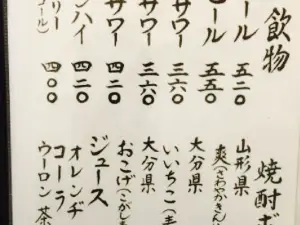 飲物
ール 五二〇
ール 五五〇
サワー 三六〇
サワー 三六〇
サワー 四二〇
ンハイ 四二〇
リー
コール) 四〇〇
焼酎ボ
山形県
爽(さわやかきん
大分県
いいちこ(麦
大分県
おこげ(こがし麦
ジュース
オレンヂ
コーラ
ウーロン茶